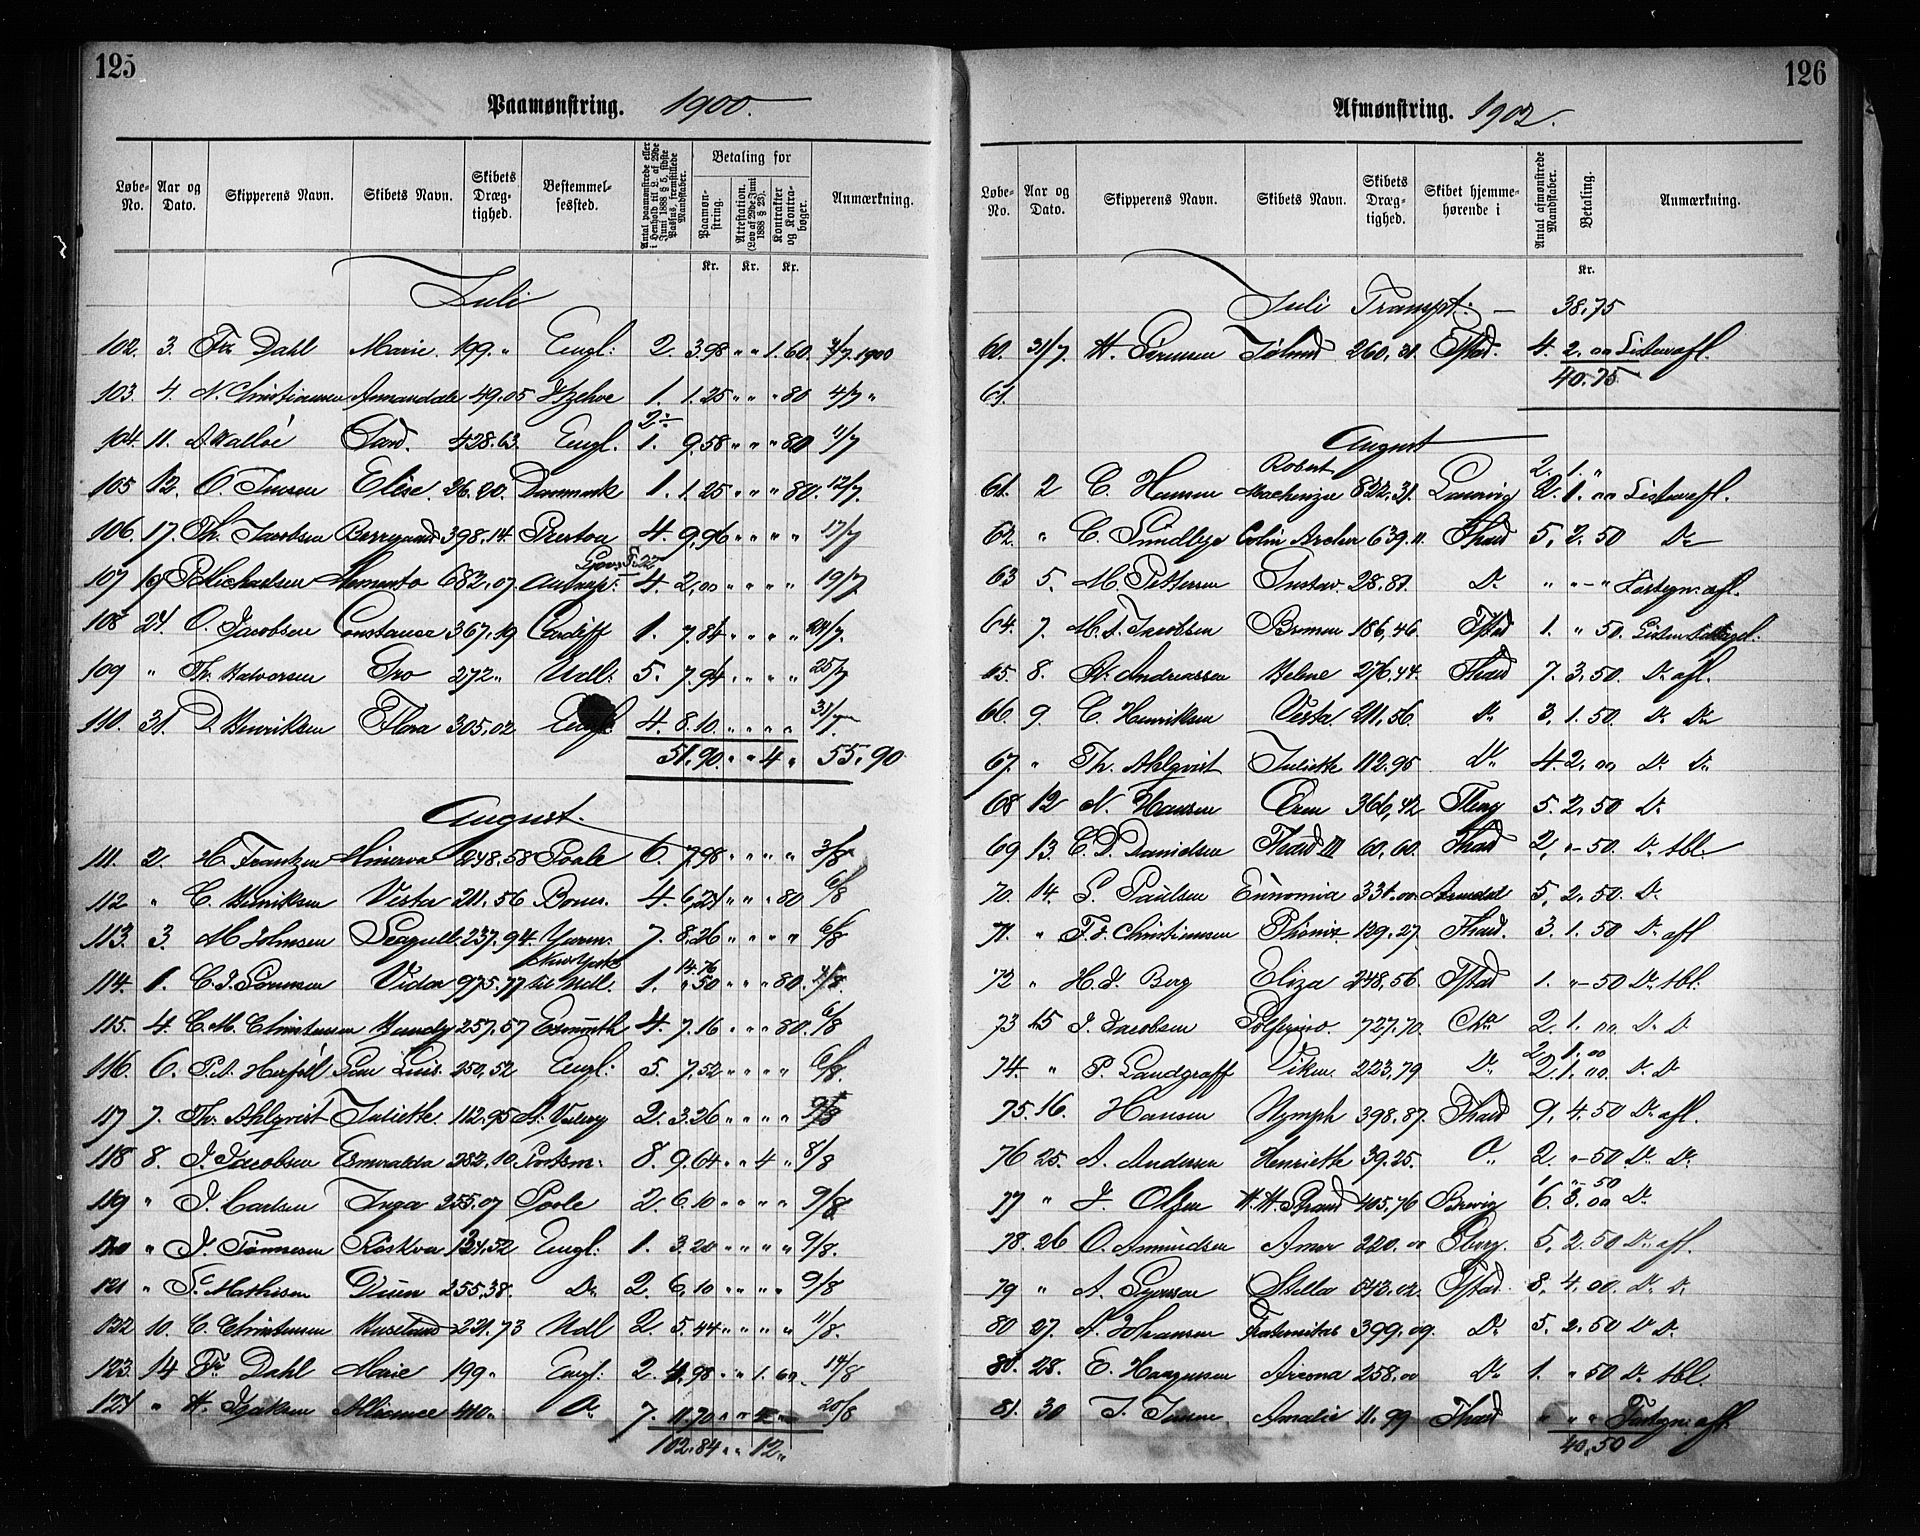 125
Paamønstring. 1900.
Løbe-No. Aar og Dato. Skipperens Navn. Skibets Navn. Skibets Dræg-tighed. Bestemmel-sessted. Antal paamønstrede eller i Henhold til L. af 29de Juni 1888 § 5, sidste Passus, fremstillede Mandskaber. Betaling for Paamøn-string. Attestation. (Lov af 29de Juni 1888 § 23). Kontrakter og Kontra-bøger. Anmærkning.
Kr. Kr. Kr.
Juli
102. 3. Fr. Dahl Marie 199 " Engl: 2. 3.98 " " 1.60 4/7.1900
103. 4. N. Christiansen Amandale 49.05 Itzehoe 1. 1.25 " " " 80 4/7 "
2
104. 11. Sard. 428.63. Engl. 1. 9.58 " " " 80 11/7
105 12. O. Jensen Elise. 26.20. Danmark 1. 1.25 " " " 80. 12/7
106. 17. Th. Jacobsen 398.14. Preston 4. 9.96 " " " " 17/7
107 19 P. Michaelsen Memento 682.07 4. 2.00 " " " " 19/7
108 24. O. Jacobsen Constance 367.19 Cardiff 1. 7.84 " " " " 24/7.
109 " Th. Halvorsen Gro 272 " Udl: 5. 7.94 " " " " 25/7
110. 31. D. Henriksen Flora 305.02 Engl. 4. 8.10 " " " " 31/7
51.90 " " 4 " 55.90
August.
111. 2. H. Frantzen Minerva 248.58 Poole 6. 7.98 " " " " 3/8
112 " C. Henriksen Vesta 211.56 4. 6.24 " " " 80 6/8
113. 3. M. Johnsen Seagull 237.94. 7. 8.26 " " " " 6/8
New York 14.76
114. 1. C. J. Sørensen Vidar 975.77 1. " 50 " " " 80.
115. 4. C. M. Christensen 257.57 Exmouth 4. 7.16 " " " 80. 6/8
116. 6. San Luis 250.52 Engl: 5. 7.52 " " " " 6/8.
117 7. Th. Ahlqvist Juliette. 112.95 2. 3.26 " " " " 9/8
118 8. J. Jacobsen Esmeralda 282.10 Portsm: 8. 9.64 " " 4 " 8/8
119 " J. Carlsen Inga 255.07 Poole 2. 6.10 " " " " 9/8.
120 " J. Tønnesen Röskva 124.52 Engl: 1. 3.20 " " " " 9/8.
121 " S. Mathisen Duen 255.38. Do 2. 6.10 " " " " 9/8
122 10. C. Christensen 221.73 Udl 2. 5.44 " " " " 11/8.
123. 14 Fr. Dahl Marie 199 " Engl: 2. 4.98 " " 1.60. 14/8
124 " H. Isaksen Alliance 410 " Do 7. 11.70 " " 20/8
102.84 " " 12 "
126
Afmønstring. 1902.
Løbe-No. Aar og Dato. Skipperens Navn. Skibets Navn. Skibets Dræg-tighed. Skibet hjemme-hørende i Antal afmønstrede Mandskaber. Betaling. Anmærkning.
Kr.
Juli Transpt: — 38.75
60. 31/7. H. 260.31. Thad. 4. 2.00 Listen afl.
40.75
61.
August
Robert 2. 1. "
61. 2 C. Hansen Mackenzie 822.31. Laurvig 2. 1.00 Listen afl.
62. " C. Sundbye Colin Archer 639.11. Thad 5. 2.50 Do
63 5. M. Pettersen Gustav. 28.81. Do " " - " afl.
64. 7. M. A. Jacobsen 186.46. 1. " 50.
65. 8. A. Andreassen Helene 276.44. Thad 7. 3.50. Do afl.
66. 9 C. Henriksen Vesta 211.56. Do 3. 1.50. Do Do
67. " Th. Ahlqvist Juliette 112.95 Do 4. 2.00 Do Do
68 12 N. Hansen Ørn 366.42 5. 2.50 Do
69 13. C. P. Danielsen Thad III 60.60. Thad 2. " - 50. Do tbl.
70. 14. S. Paulsen Eunomia 331.00 Arendal 5. 2.50. Do
71. " F. J. Christiansen Phönix. 129.27. Thad. 3. 1.50 Do afl
72 " H. J. Berg Eliza 248.56. 1. " - 50 Do tbl.
73 15 J. Jacobsen Solferino. 727.70. Do 2. 1.00 Do Do
2. 1.00
74. " P. Landgraff Viken 223.79 Do 2. 1.00. Do Do
75. 16. Hansen Nymph 398.87. Thad 9. 4.50 Do afl.
76 25. A. Andersen Henriette 39.25. Do 2. " - 50 Do Do
1 " 50
77 " J. Olsen H. H. Strand 405.76 Brevig 6. 3.00 Do
78. 26 O. Amundsen Amor 220.00 5. 2.50 Do afl.
79 " A. Stella 543.02. 8. 4.00 Do Do
80 27. A. Johansen Fraternitas 399.09. Do 5. 2.50 Do Do
80. 28. E. Haagensen Arcona 258.00 Do 1. " 50 Do tbl.
81. 30 J. Jensen Amalie 11.99 Thad " " " afl.
40.50